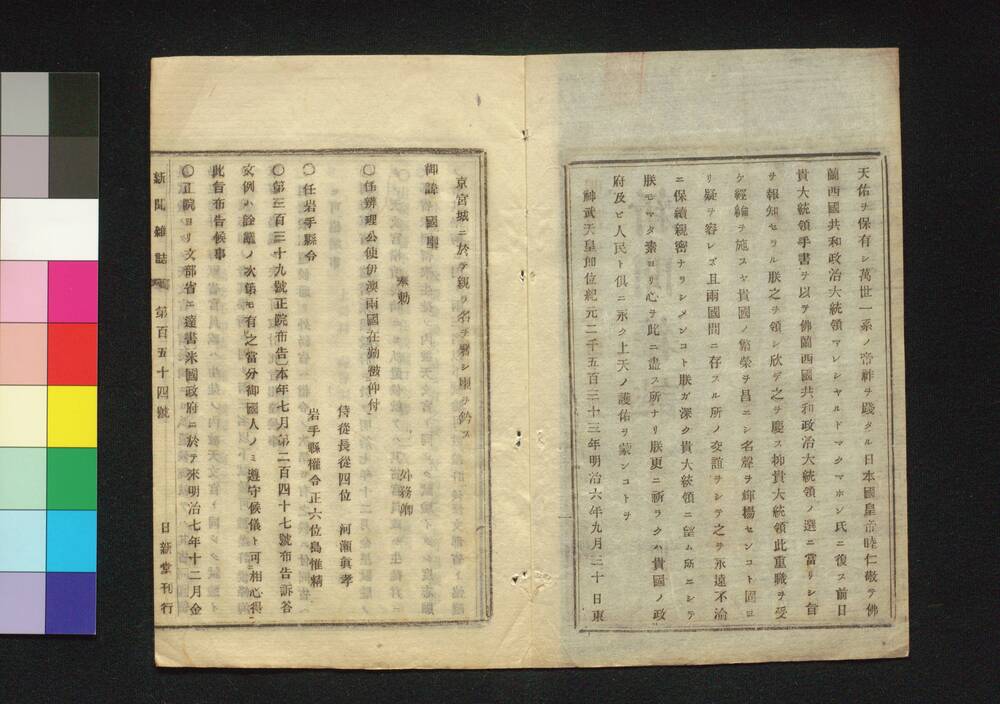 天佑ヲ保有シ萬世一系ノ帝祚ヲ踐タル日本國皇帝睦仁敬テ佛
蘭西國共和政治大統領マレシヤルドマクマホン氏ニ復ス前日
貴大統領手書ヲ以テ佛蘭西國共和政治大統領ノ選ニ當リシ旨
ヲ報知セラル朕之ヲ領シ欣テ之ヲ慶ス抑貴大統領此重職ヲ受
ケ經綸ヲ施スヤ貴國ノ繁榮ヲ昌ニシ名聲ヲ輝揚センコト固ヨ
リ疑ヲ容レズ且兩國間ニ存スル所ノ交誼ヲシテ之ヲ永遠不渝
ニ保續親密ナリシメンコト朕ガ深ク貴大統領ニ望ム所ニシテ
朕モマタ素ヨリ心ヲ此ニ盡ス所ナリ朕更ニ祈ラクハ貴國ノ政
府及ビ人民ト俱ニ永ク上天ノ護佑ヲ蒙ンコトヲ
神武天皇即位紀元二千五百三十三年明治六年九月三十日東
京宮城ニ於テ親ヲ名ヲ署シ璽ヲ鈐ス
御諱 國璽
奉勅 外務卿
〇任辨理公使伊澳兩國在勤被仰付
侍從長從四位 河瀬眞孝
〇任岩手縣令
岩手縣權令正六位島惟精
〇第三百三十九號正院布告本年七月第二百四十七號布告訴答
文例ハ餘議ノ次第モ有之當分御國人ノミ遵守候儀ト可相心得
此旨布告候事
〇正院ヨリ文部省ニ達書米國政府ニ於テ來明治七年十二月金
新聞雜誌 第百五十四號 日新堂刊行